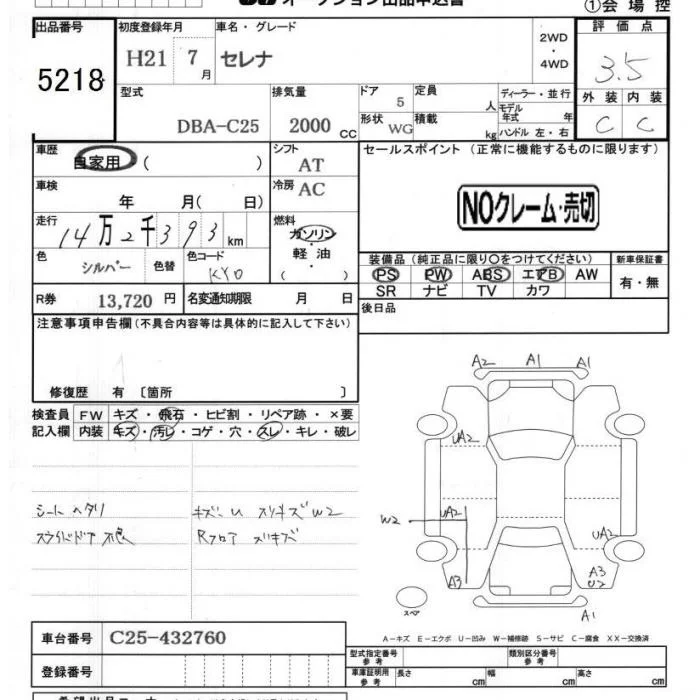 オークション出品申込書
①会場控
出品番号 初度登録年月 車名・グレード 評価点
5218 H21 7月 セレナ 2WD・4WD 3.5
型式 排気量 ドア 5 定員 人 ディーラー・並行 外装 内装
DBA-C25 2000cc 形状 WG 積載 kg モデル年式 年 ハンドル 左・右 C C
車歴 自家用( ) シフト AT セールスポイント(正常に機能するものに限ります)
車検 年 月( 日) 冷房 AC
NOクレーム・売切
走行 14万2千393km 燃料 ガソリン・軽油( )
色 シルバー 色替 色コード KY0
装備品(純正品に限り○をつけてください) 新車保証書
PS PW ABS エアB AW 有・無
SR ナビ TV カワ
R券 13,720円 名変通知期限 月 日 後日品
注意事項申告欄(不具合内容等は具体的に記入して下さい)
修復歴 有〔箇所 〕
検査員 FW キズ・飛石・ヒビ割・リペア跡・×要
記入欄 内装 キズ・汚レ・コゲ・穴・スレ・キレ・破レ
シートヘタリ キズ・U スリキズ W2
スライドドア不良 Rフロア スリキズ
A2 A1 A1
UA2
W2 UA2 UA2
A3 A3 U2
スペア A1
車台番号 C25-432760
A-キズ E-エクボ U-凹み W-補修跡 S-サビ C-腐食 XX-交換済
登録番号
型式指定番号 参考 類別区分番号 参考
車庫証明用 参考 長さ cm 幅 cm 高さ cm